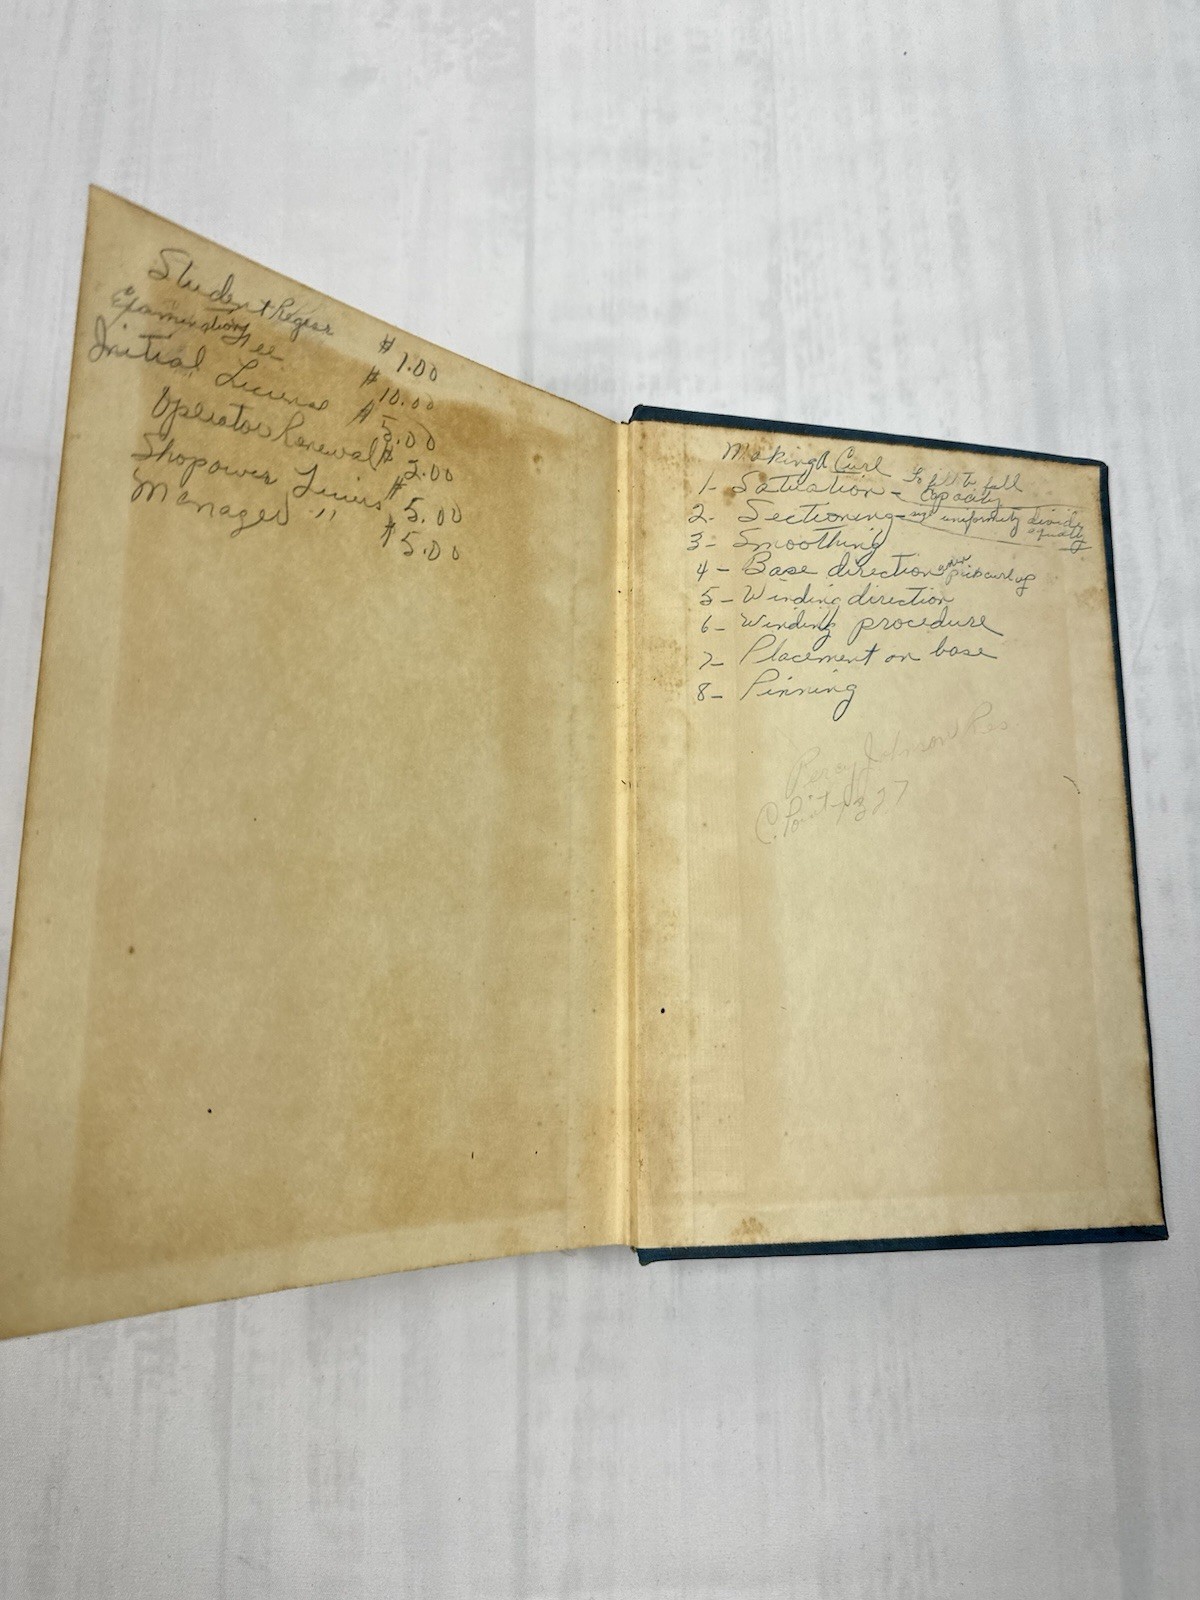 Student Regis
Examination Fee
Initial License
Operator Renewal
Shopower
Manager "
$ 1.00
$ 10.00
$ 5.00
$ 5.00
$ 5.00
Making A Curl
1- Satuation - To fill to full
Capacity
2- Sectioning - uniformity divide
equally
3- Smoothing
4- Base direction
5- Winding direction
6- Winding procedure
7- Placement on base
8- Pinning
Percy Johnson Res
C. Point 327